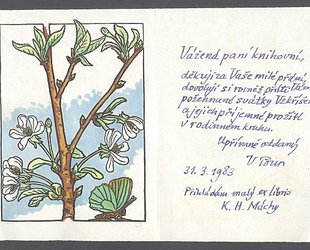 Vážená paní knihovní,
děkuji za Vaše milé přání,
dovoluji si rovněž přáti Vám
požehnané svátky Vzkříšení
a jejich příjemné prožití
v rodinném kruhu.
Upřímně oddaný
31. 3. 1983
Přikládám malý ex libris
K. H. Máchy